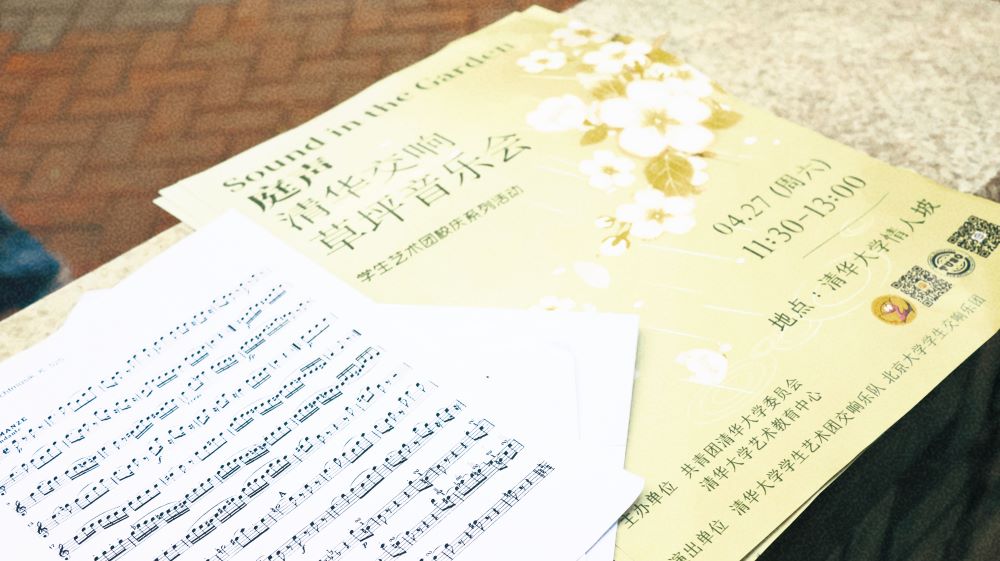 Sound in the Garden
庭声
清华交响
草坪音乐会
学生艺术团校庆系列活动
04.27 (周六)
11:30-13:00
地点：清华大学情人坡
主办单位 共青团清华大学委员会
清华大学艺术教育中心
演出单位 清华大学学生艺术团交响乐队 北京大学学生交响乐团